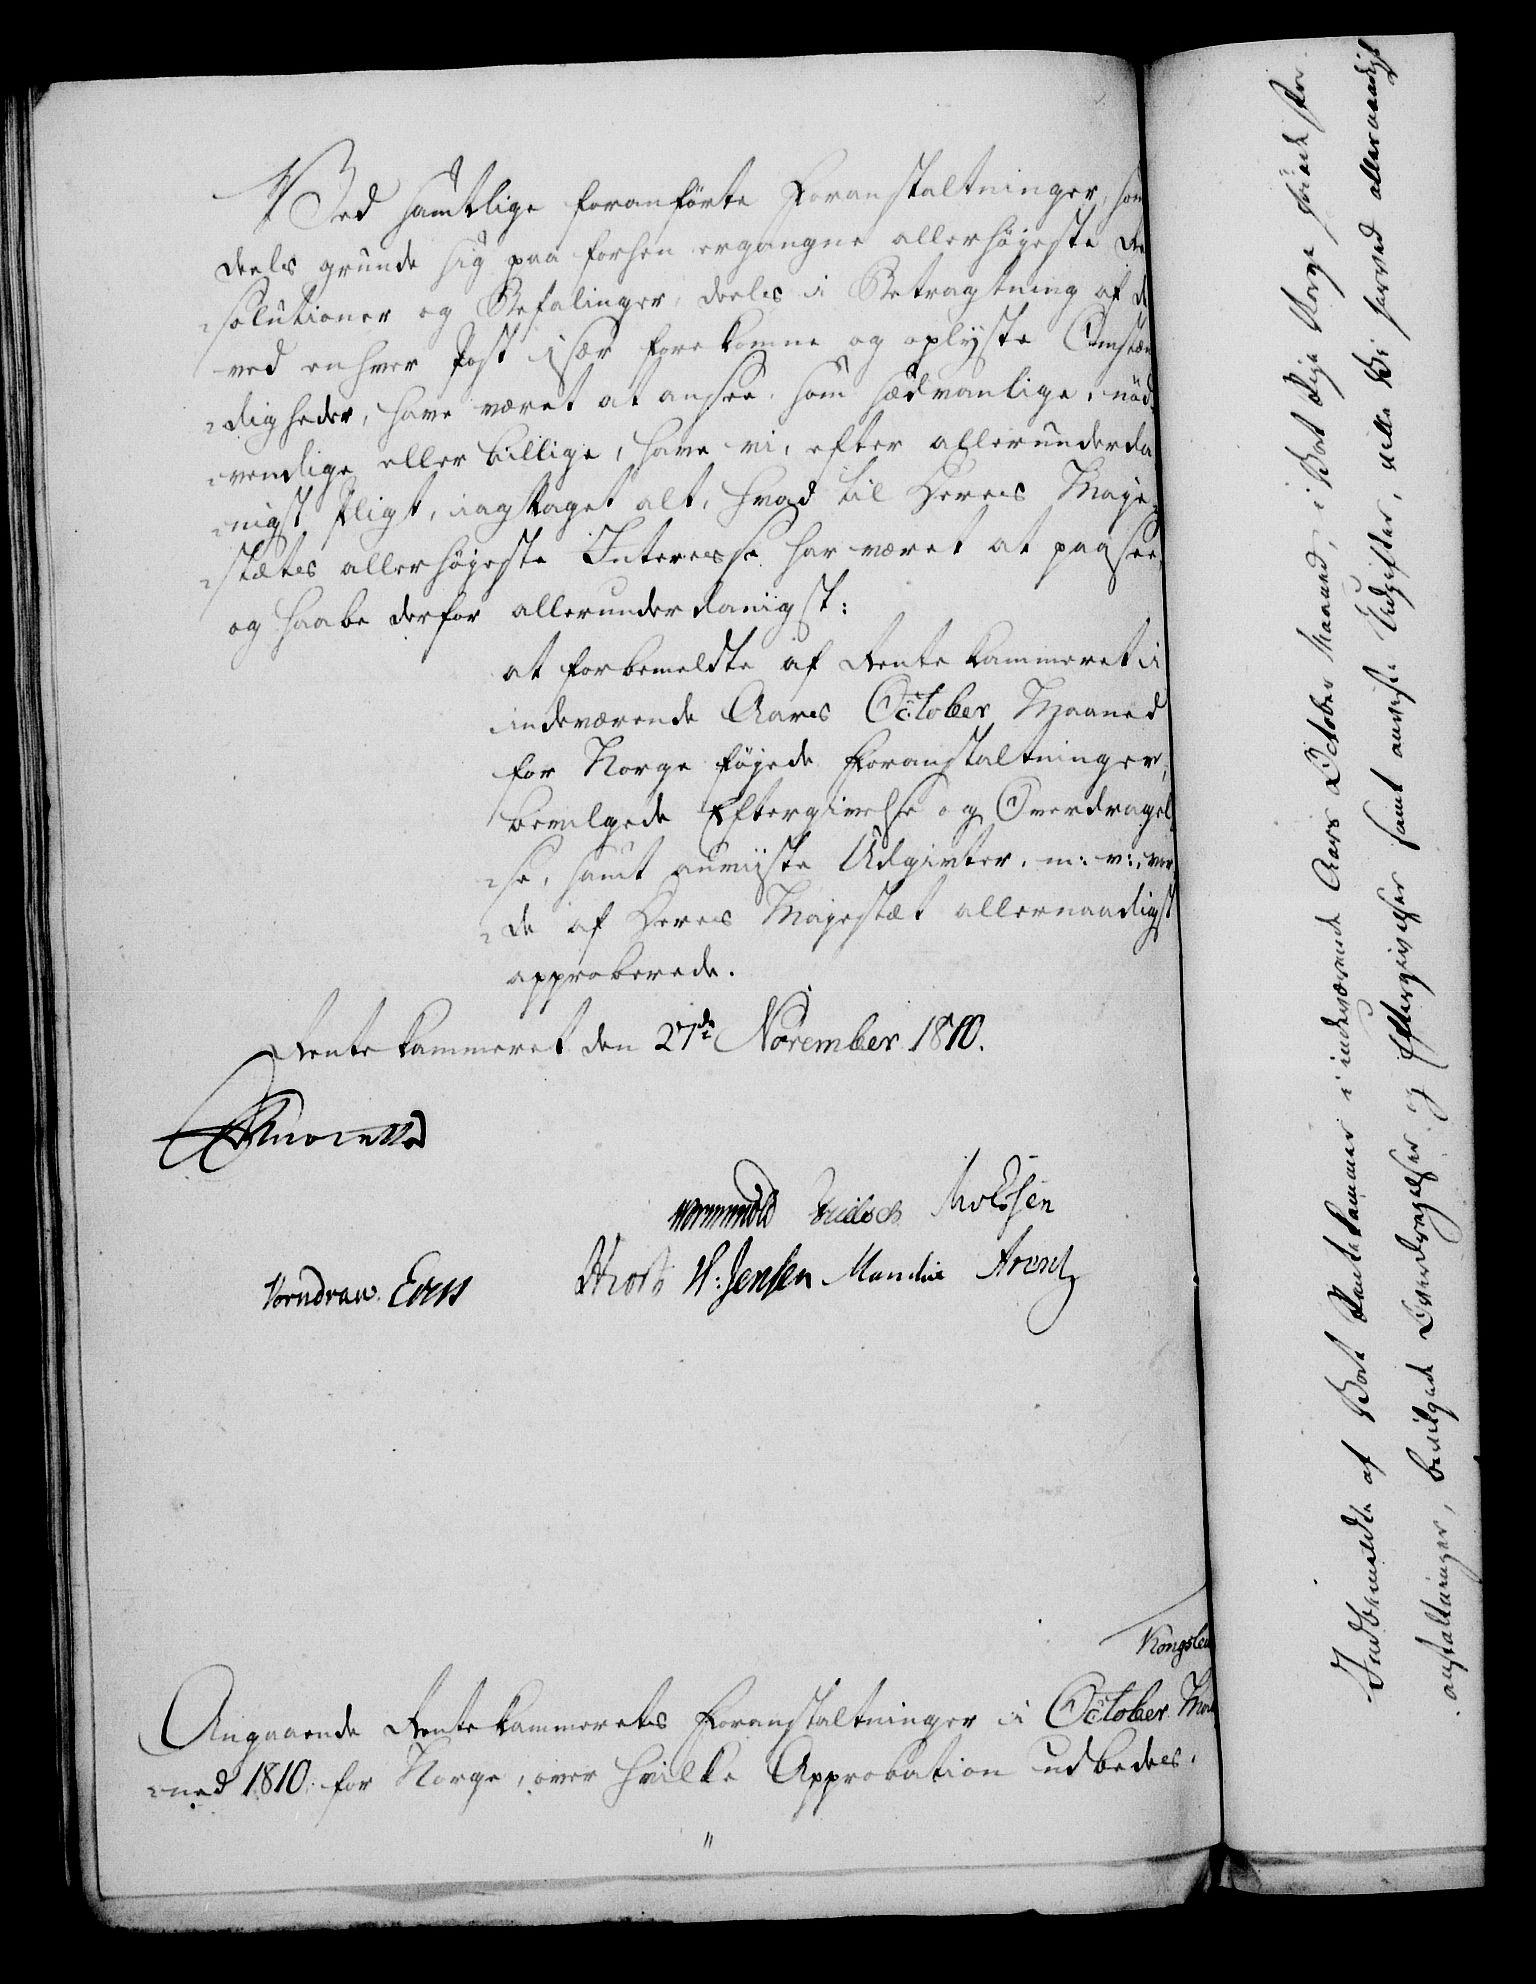 Ved samtlige foranførte Foranstaltninger, som
deels grunde sig paa forhen ergangne allerhøjeste Re
solutioner og Befalinger, deels i Betragtning af de
ved enhver Post især forekomne og oplyste Omstæn
digheder, have været at ansee, som sædvanlige, nød
vendige eller billige, have vi, efter allerunderda
nigst Pligt, iagttaget alt, hvad til Deres Maje
stætes allerhøjeste Interesse har været at paasee,
og haabe derfor allerunderdanigst:
at forbemeldte af Rentekammeret i
indeværende Aares October Maaned
for Norge føjede Foranstaltninger,
bevilgede Eftergivelse og Overdragel
se, samt anviiste Udgivter, m: v:, vor
de af Deres Majestæt allernaadigst
approberede.
Rentekammeret den 27de November 1810.
Wormskiold Moldsen
Vorndran Evers H: Jensen Mandix Arentz
Kongslew
Angaaende Rentekammerets Foranstaltninger i October Maa
ned 1810. for Norge, over hvilke Approbation udbedes.
"
Indbemeldte af Vort Rentekammer i indeværende Aars October Maaned, i Vort Rige Norge føiede For
anstaltninger, bevilgede Overdragelser og Eftergivelser samt anviste Udgifter, ville Vi herved allernaadigst